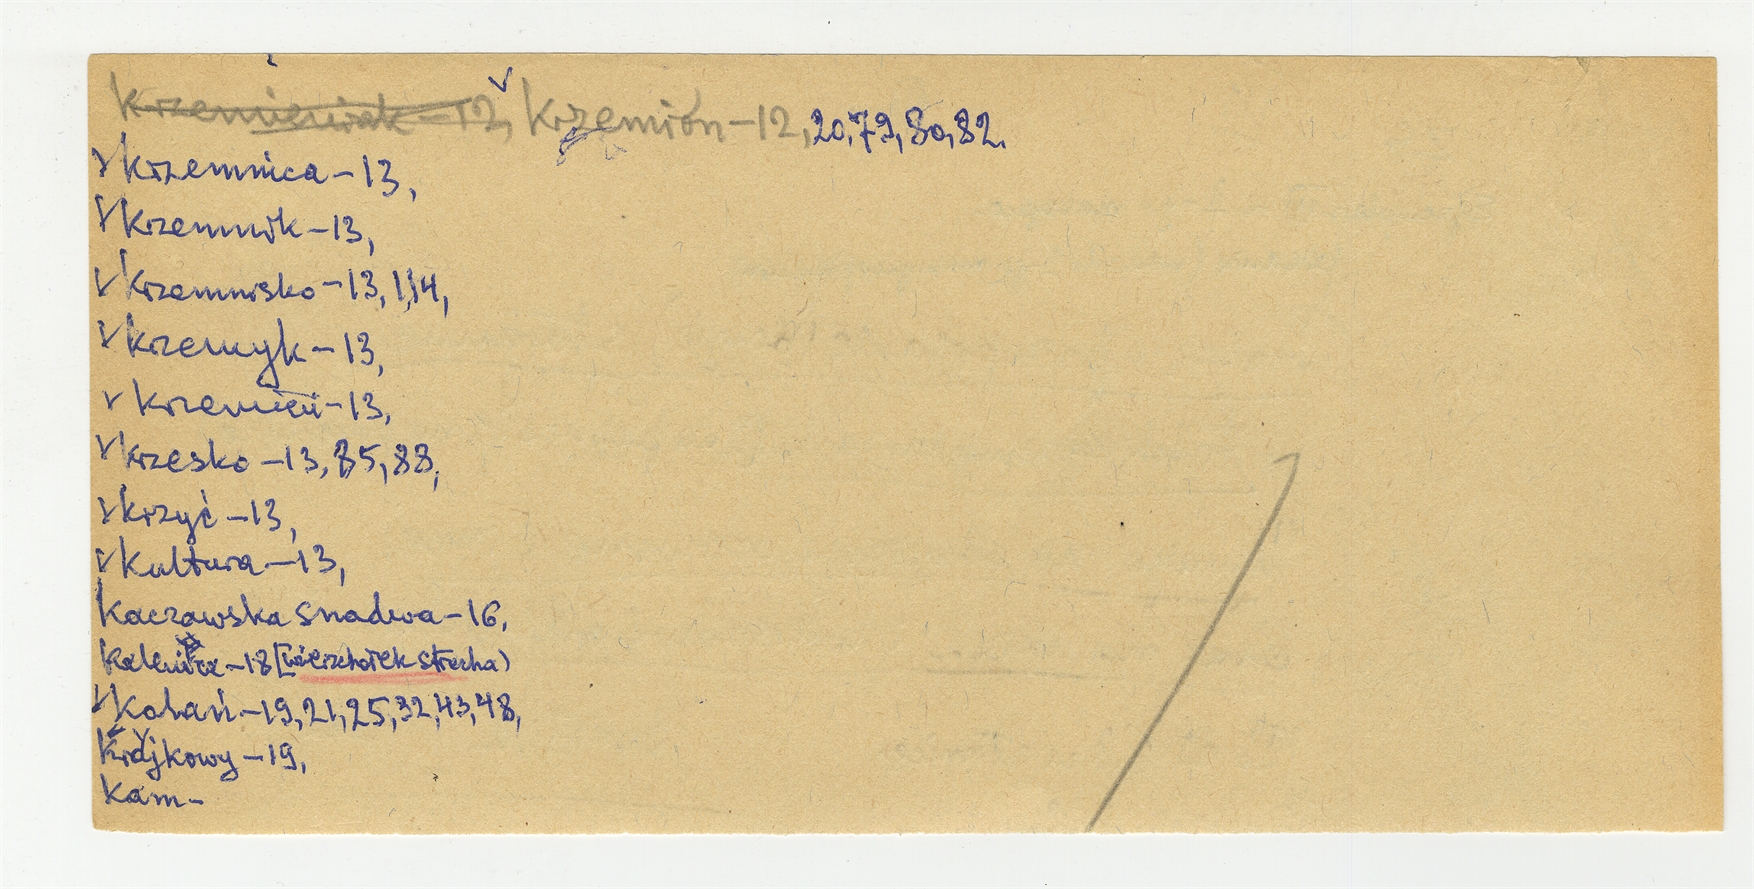 Krzemieniak – 12, Krzemión – 12, 20, 79, 80, 82.
Krzemnica – 13,
Krzemnik – 13,
Krzemnisko – 13, 114,
Krzemyk – 13,
Krzemień – 13,
Krzesko – 13, 85, 88,
Krzyć – 13,
Kultura – 13,
Kaczawska Snadwa – 16,
– 18 (wierzchołek strzecha)
Kolań – 19, 21, 25, 32, 43, 48,
Krájkowy – 19,
Kam –